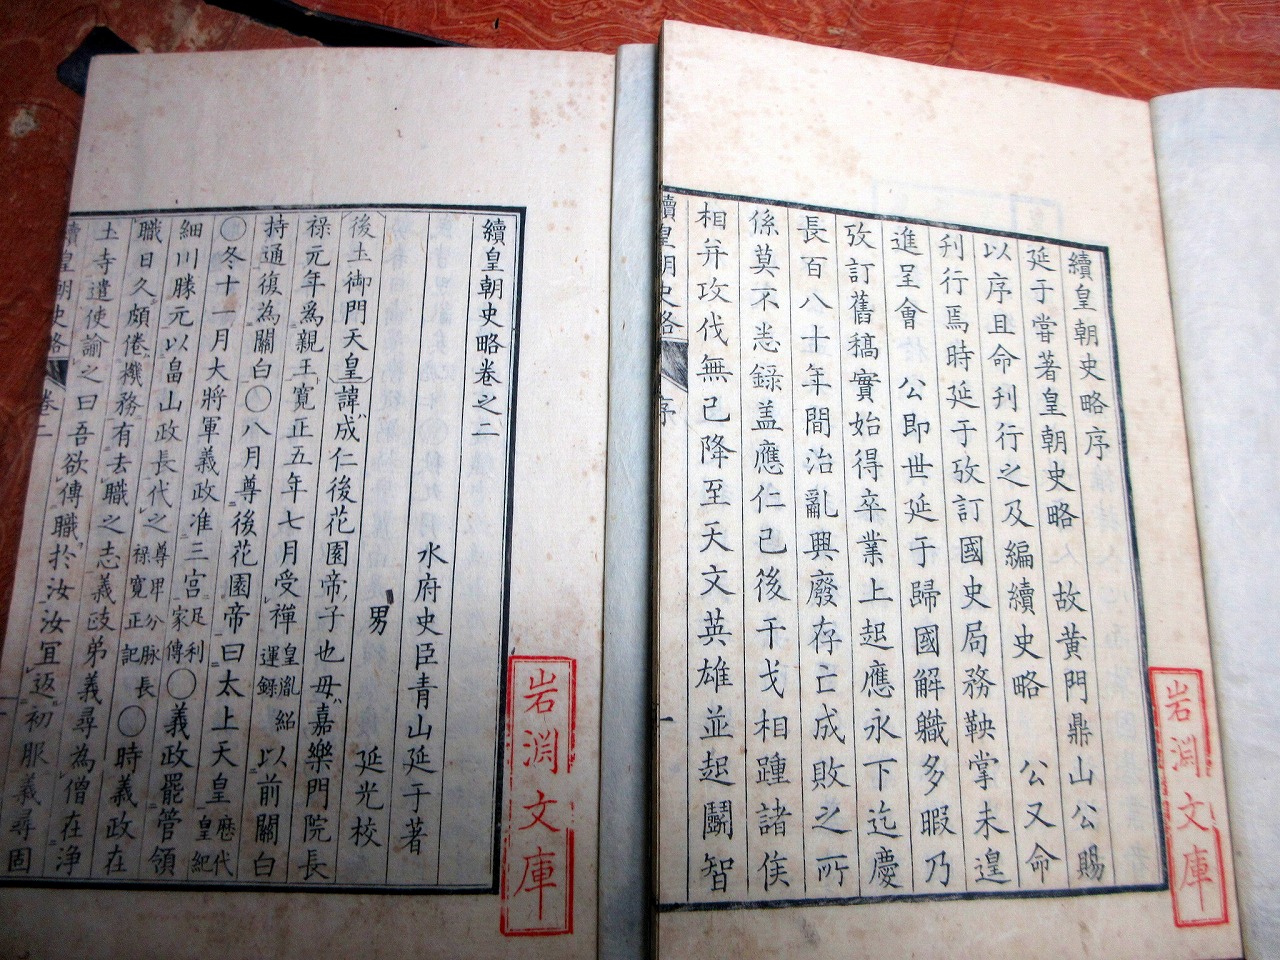 續皇朝史略序
延于甞著皇朝史略　故黄門鼎山公賜
以序且命刋行之及編續史略　公又命
刋行焉時延于攷訂國史局務鞅掌未遑
進呈會　公即世延于歸國解職多暇乃
攷訂舊稿實始得卒業上起應永下迄慶
長百八十年間治亂興廢存亡成敗之所
係莫不悉録盖應仁已後干戈相踵諸侯
相并攻伐無已降至天文英雄並起鬭智
續皇朝史略　序　一
岩渕文庫
續皇朝史略卷之二
水府史臣青山延于著
男　延光校
後土御門天皇諱成仁後花園帝子也母嘉樂門院長
禄元年爲親王寛正五年七月受禪皇胤紹運録以前關白
持通復為關白〇八月尊後花園帝曰太上天皇歴代皇紀
〇冬十一月大將軍義政准三宮足利家傳〇義政罷管領
細川勝元以畠山政長代之尊卑分脉長禄寛正記〇時義政在
職日久頗倦機務有去職之志義政弟義尋為僧在浄
土寺遣使諭之曰吾欲傳職於汝汝冝返初服義尋固
續皇朝史略　卷二
岩渕文庫